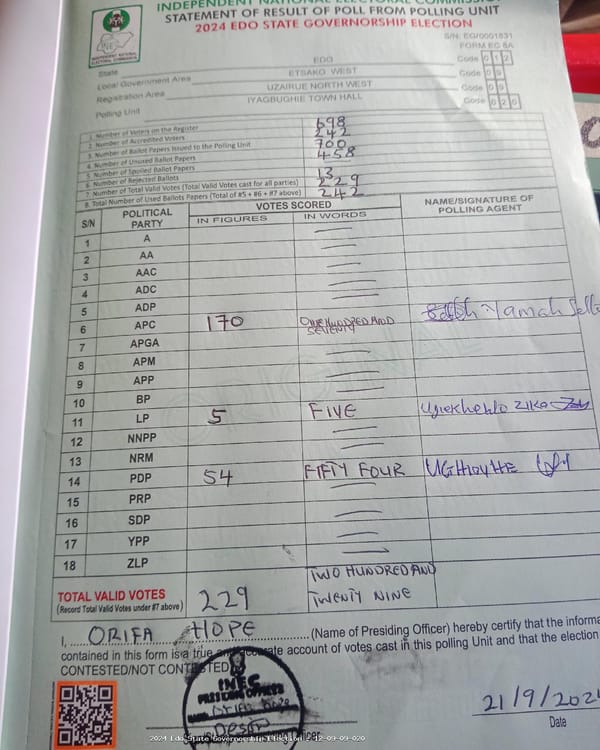 INDEPENDENT NATIONAL ELECTORAL COMMISSION
STATEMENT OF RESULT OF POLL FROM POLLING UNIT
2024 EDO STATE GOVERNORSHIP ELECTION
INEC
INDEPENDENT NATIONAL ELECTORAL COMMISSION
S/N: EG/0001831
FORM EC 8A
State EDO Code 012
Local Government Area ETSAKO WEST Code 09
Registration Area UZAIRUE NORTH WEST Code 09
Polling Unit IYAGBUGHIE TOWN HALL Code 020
1. Number of Voters on the Register 698
2. Number of Accredited Voters 242
3. Number of Ballot Papers Issued to the Polling Unit 700
4. Number of Unused Ballot Papers 458
5. Number of Spoiled Ballot Papers
6. Number of Rejected Ballots 13
7. Number of Total Valid Votes (Total Valid Votes cast for all parties) 229
8. Total Number of Used Ballots Papers (Total of #5 + #6 + #7 above) 242
S/N POLITICAL PARTY VOTES SCORED NAME/SIGNATURE OF POLLING AGENT
IN FIGURES IN WORDS
1 A
2 AA
3 AAC
4 ADC
5 ADP
6 APC 170 ONE HUNDRED AND SEVENTY
7 APGA
8 APM
9 APP
10 BP
11 LP 5 FIVE
12 NNPP
13 NRM
14 PDP 54 FIFTY FOUR
15 PRP
16 SDP
17 YPP
18 ZLP
TOTAL VALID VOTES 229 TWO HUNDRED AND TWENTY NINE
(Record Total Valid Votes under #7 above)
I, ORIFA HOPE (Name of Presiding Officer) hereby certify that the informa
contained in this form is a true and accurate account of votes cast in this polling Unit and that the election
CONTESTED/NOT CONTESTED
INEC
PRESIDING OFFICER
21/9/2024
Date
2024 Edo State Governorship Election - 12-09-09-020